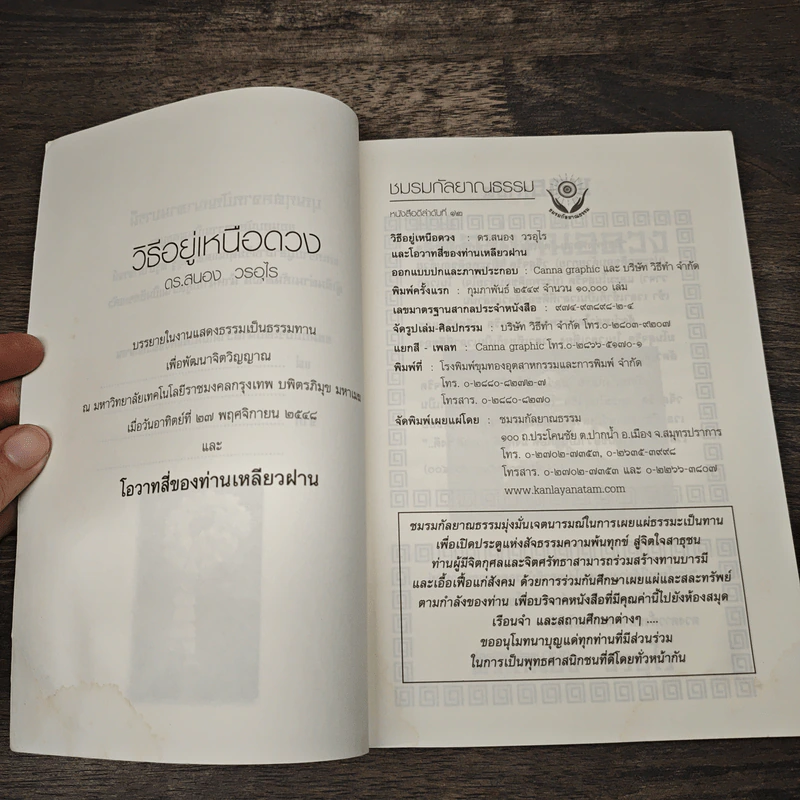 วิธีอยู่เหนือดวง
ดร.สนอง วรอุไร
บรรยายในงานแสดงธรรมเป็นธรรมทาน
เพื่อพัฒนาจิตวิญญาณ
ณ มหาวิทยาลัยเทคโนโลยีราชมงคลกรุงเทพ บพิตรภิมุข มหาเมฆ
เมื่อวันอาทิตย์ที่ ๒๗ พฤศจิกายน ๒๕๔๘
และ
โอวาทสี่ของท่านเหลียวฝาน
ชมรมกัลยาณธรรม
ชมรมกัลยาณธรรม
หนังสือดีลำดับที่ ๑๒
วิธีอยู่เหนือดวง : ดร.สนอง วรอุไร
และโอวาทสี่ของท่านเหลียวฝาน
ออกแบบปกและภาพประกอบ : Canna graphic และ บริษัท วิธีทำ จำกัด
พิมพ์ครั้งแรก : กุมภาพันธ์ ๒๕๔๙ จำนวน ๑๐,๐๐๐ เล่ม
เลขมาตรฐานสากลประจำหนังสือ : ๙๗๔-๙๓๘๙๘-๒-๔
จัดรูปเล่ม-ศิลปกรรม : บริษัท วิธีทำ จำกัด โทร.๐-๒๘๐๓-๙๒๐๗
แยกสี - เพลท : Canna graphic โทร.๐-๒๘๖๖-๕๑๗๐-๑
พิมพ์ที่ : โรงพิมพ์ขุมทองอุตสาหกรรมและการพิมพ์ จำกัด
โทร. ๐-๒๘๘๐-๘๒๗๒-๗
โทรสาร. ๐-๒๘๘๐-๘๒๗๐
จัดพิมพ์เผยแผ่โดย : ชมรมกัลยาณธรรม
๑๐๐ ถ.ประโคนชัย ต.ปากน้ำ อ.เมือง จ.สมุทรปราการ
โทร. ๐-๒๗๐๒-๗๓๕๓, ๐-๒๖๓๕-๓๙๙๘
โทรสาร. ๐-๒๗๐๒-๗๓๕๓ และ ๐-๒๒๖๖-๓๘๐๗
www.kanlayanatam.com
ชมรมกัลยาณธรรมมุ่งมั่นเจตนารมณ์ในการเผยแผ่ธรรมะเป็นทาน
เพื่อเปิดประตูแห่งสัจธรรมความพ้นทุกข์ สู่จิตใจสาธุชน
ท่านผู้มีจิตกุศลและจิตศรัทธาสามารถร่วมสร้างทานบารมี
และเอื้อเฟื้อแก่สังคม ด้วยการร่วมกันศึกษาเผยแผ่และสละทรัพย์
ตามกำลังของท่าน เพื่อบริจาคหนังสือที่มีคุณค่านี้ไปยังห้องสมุด
เรือนจำ และสถานศึกษาต่างๆ ....
ขออนุโมทนาบุญแด่ทุกท่านที่มีส่วนร่วม
ในการเป็นพุทธศาสนิกชนที่ดีโดยทั่วหน้ากัน